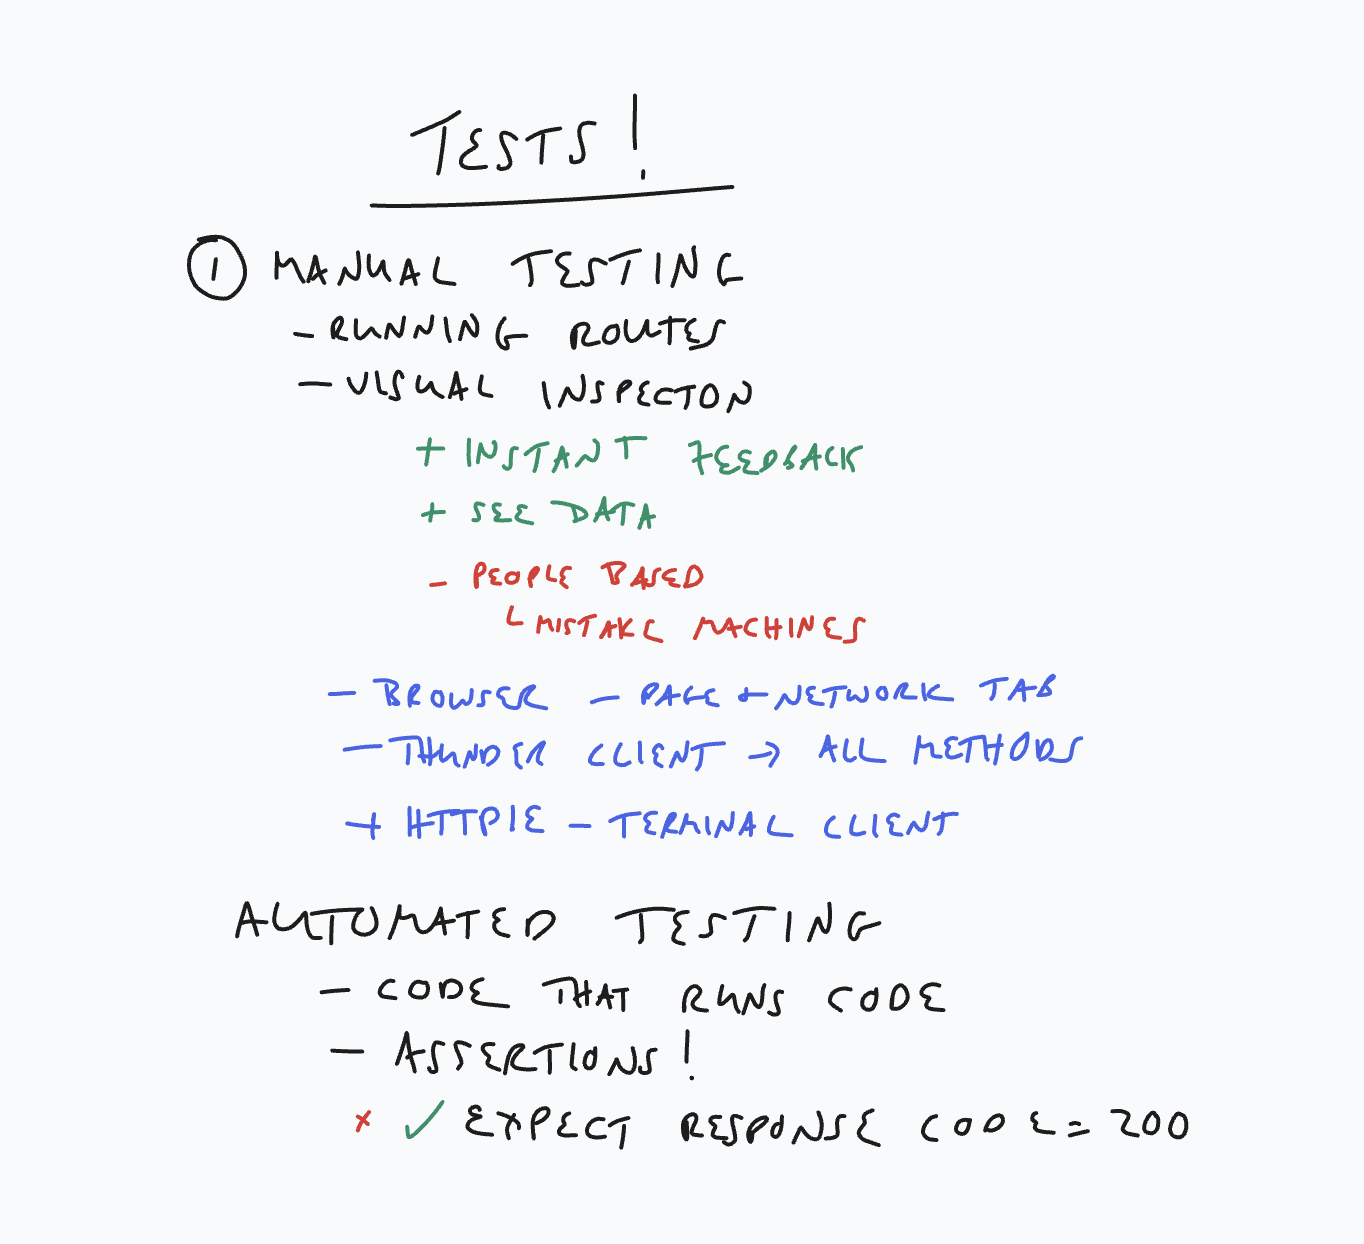 TESTS!
① MANUAL TESTING
- RUNNING ROUTES
- VISUAL INSPECTON
+ INSTANT FEEDBACK
+ SEE DATA
- PEOPLE BASED
└ MISTAKE MACHINES
- BROWSER - PAGE + NETWORK TAB
- THUNDER CLIENT → ALL METHODS
+ HTTPIE - TERMINAL CLIENT
AUTOMATED TESTING
- CODE THAT RUNS CODE
- ASSERTIONS!
✗ ✓ EXPECT RESPONSE CODE = 200